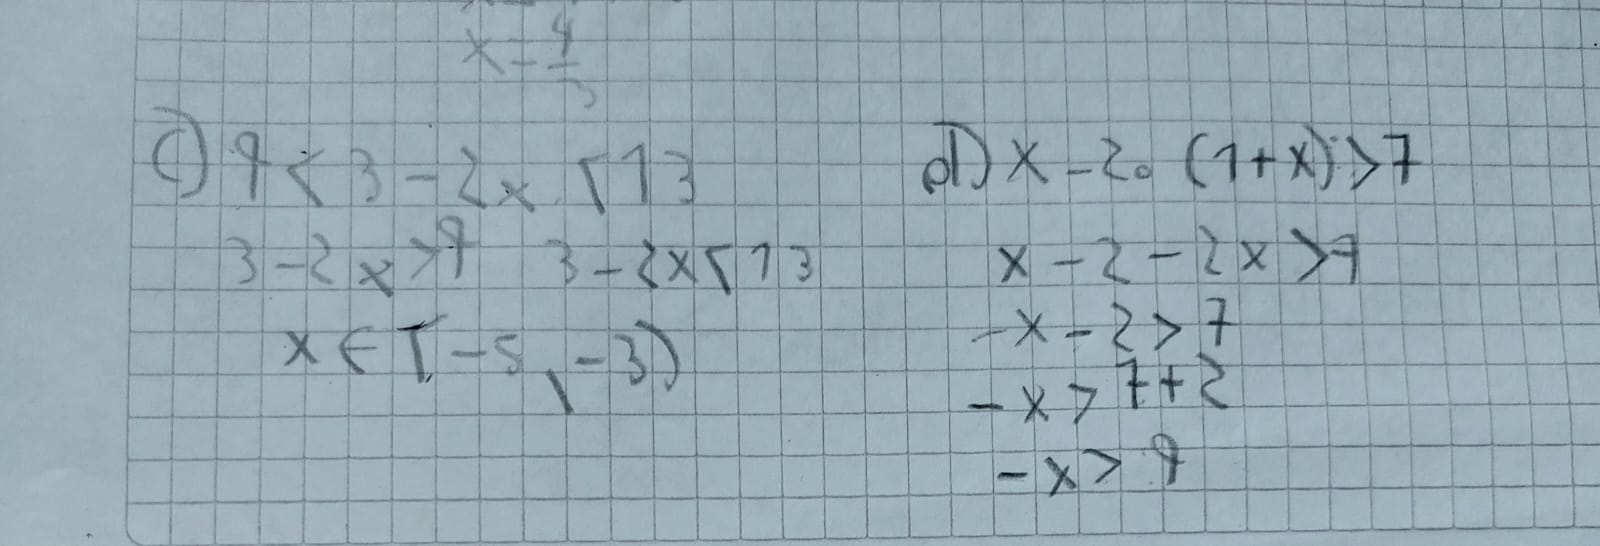 x = 4/3
c) 9 < 3 - 2x ≤ 13
3 - 2x > 9   3 - 2x ≤ 13
x ∈ [-5, -3)
d) x - 2 · (1 + x) > 7
x - 2 - 2x > 7
-x - 2 > 7
-x > 7 + 2
-x > 9